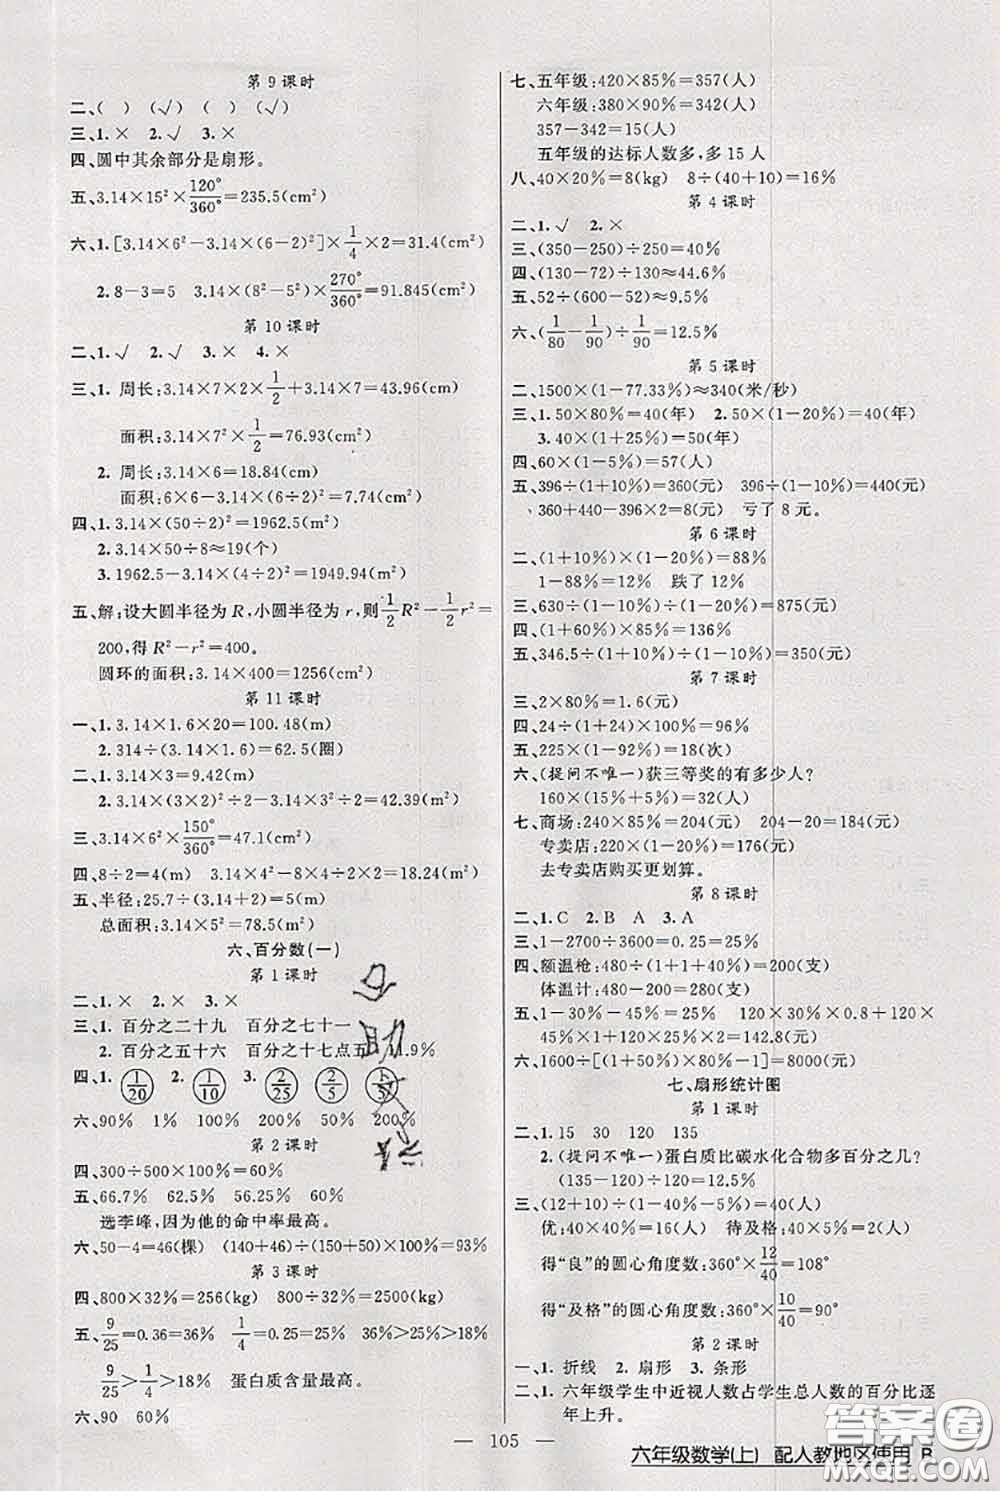 第9课时
二、( ) (√) ( ) (√)
三、1.× 2.√ 3.×
四、圆中其余部分是扇形。
五、3.14×15²×120°/360°=235.5(cm²)
六、1.[3.14×6²－3.14×(6－2)²]×1/4×2=31.4(cm²)
2. 8－3=5 3.14×(8²－5²)×270°/360°=91.845(cm²)
第10课时
二、1.√ 2.√ 3.× 4.×
三、1. 周长:3.14×7×2×1/2+3.14×7=43.96(cm)
面积:3.14×7²×1/2=76.93(cm²)
2. 周长:3.14×6=18.84(cm)
面积:6×6－3.14×(6÷2)²=7.74(cm²)
四、1. 3.14×(50÷2)²=1962.5(m²)
2. 3.14×50÷8≈19(个)
3. 1962.5－3.14×(4÷2)²=1949.94(m²)
五、解:设大圆半径为R,小圆半径为r,则1/2R²－1/2r²=
200,得R²－r²=400。
圆环的面积:3.14×400=1256(cm²)
第11课时
一、1. 3.14×1.6×20=100.48(m)
2. 314÷(3.14×1.6)=62.5(圈)
二、1. 3.14×3=9.42(m)
2. 3.14×(3×2)²÷2－3.14×3²÷2=42.39(m²)
三、3.14×6²×150°/360°=47.1(cm²)
四、8÷2=4(m) 3.14×4²－8×4÷2×2=18.24(m²)
五、半径:25.7÷(3.14+2)=5(m)
总面积:3.14×5²=78.5(m²)
六、百分数(一)
第1课时
二、1.× 2.× 3.×
三、1. 百分之二十九 百分之七十一
2. 百分之五十六 百分之十七点五
四、1. 1/20 2. 1/10 3. 2/25 4. 2/5
六、90% 1% 100% 200% 50% 200%
第2课时
四、300÷500×100%=60%
五、66.7% 62.5% 56.25% 60%
选李峰,因为他的命中率最高。
六、50－4=46(棵) (140+46)÷(150+50)×100%=93%
第3课时
四、800×32%=256(kg) 800÷32%=2500(kg)
五、9/25=0.36=36% 1/4=0.25=25% 36%>25%>18%
9/25>1/4>18% 蛋白质含量最高。
六、90 60%
七、五年级:420×85%=357(人)
六年级:380×90%=342(人)
357－342=15(人)
五年级的达标人数多,多15人
八、40×20%=8(kg) 8÷(40+10)=16%
第4课时
二、1.√ 2.×
三、(350－250)÷250=40%
四、(130－72)÷130≈44.6%
五、52÷(600－52)≈9.5%
六、(1/80－1/90)÷1/90=12.5%
第5课时
二、1500×(1－77.33%)≈340(米/秒)
三、1. 50×80%=40(年) 2. 50×(1－20%)=40(年)
3. 40×(1+25%)=50(年)
四、60×(1－5%)=57(人)
五、396÷(1+10%)=360(元) 396÷(1－10%)=440(元)
360+440－396×2=8(元) 亏了8元。
第6课时
二、(1+10%)×(1－20%)=88%
1－88%=12% 跌了12%
三、630÷(1－10%)÷(1－20%)=875(元)
四、(1+60%)×85%=136%
五、346.5÷(1+10%)÷(1－10%)=350(元)
第7课时
三、2×80%=1.6(元)
四、24÷(1+24)×100%=96%
五、225×(1－92%)=18(次)
六、(提问不唯一)获三等奖的有多少人?
160×(15%+5%)=32(人)
七、商场:240×85%=204(元) 204－20=184(元)
专卖店:220×(1－20%)=176(元)
去专卖店购买更划算。
第8课时
二、1. C 2. B A 3. A
三、1－2700÷3600=0.25=25%
四、额温枪:480÷(1+1+40%)=200(支)
体温计:480÷(1+1+40%)×(1+40%)=280(支)
五、1－30%－45%=25% 120×30%×0.8+120×
45%×1+120×25%×2=142.8(元)
六、1600÷[(1+50%)×80%－1]=8000(元)
七、扇形统计图
第1课时
二、1. 15 30 120 135
2. (提问不唯一)蛋白质比碳水化合物多百分之几?
(135－120)÷120=12.5%
三、(12+10)÷(1－40%－5%)=40(人)
优:40×40%=16(人) 待及格:40×5%=2(人)
得“良”的圆心角度数:360°×12/40=108°
得“及格”的圆心角度数:360°×10/40=90°
第2课时
一、1. 折线 2. 扇形 3. 条形
二、1. 六年级学生中近视人数占学生总人数的百分比逐
年上升。
— 105 —
六年级数学(上) 配人教地区使用 R
答案圈
MXQE.COM